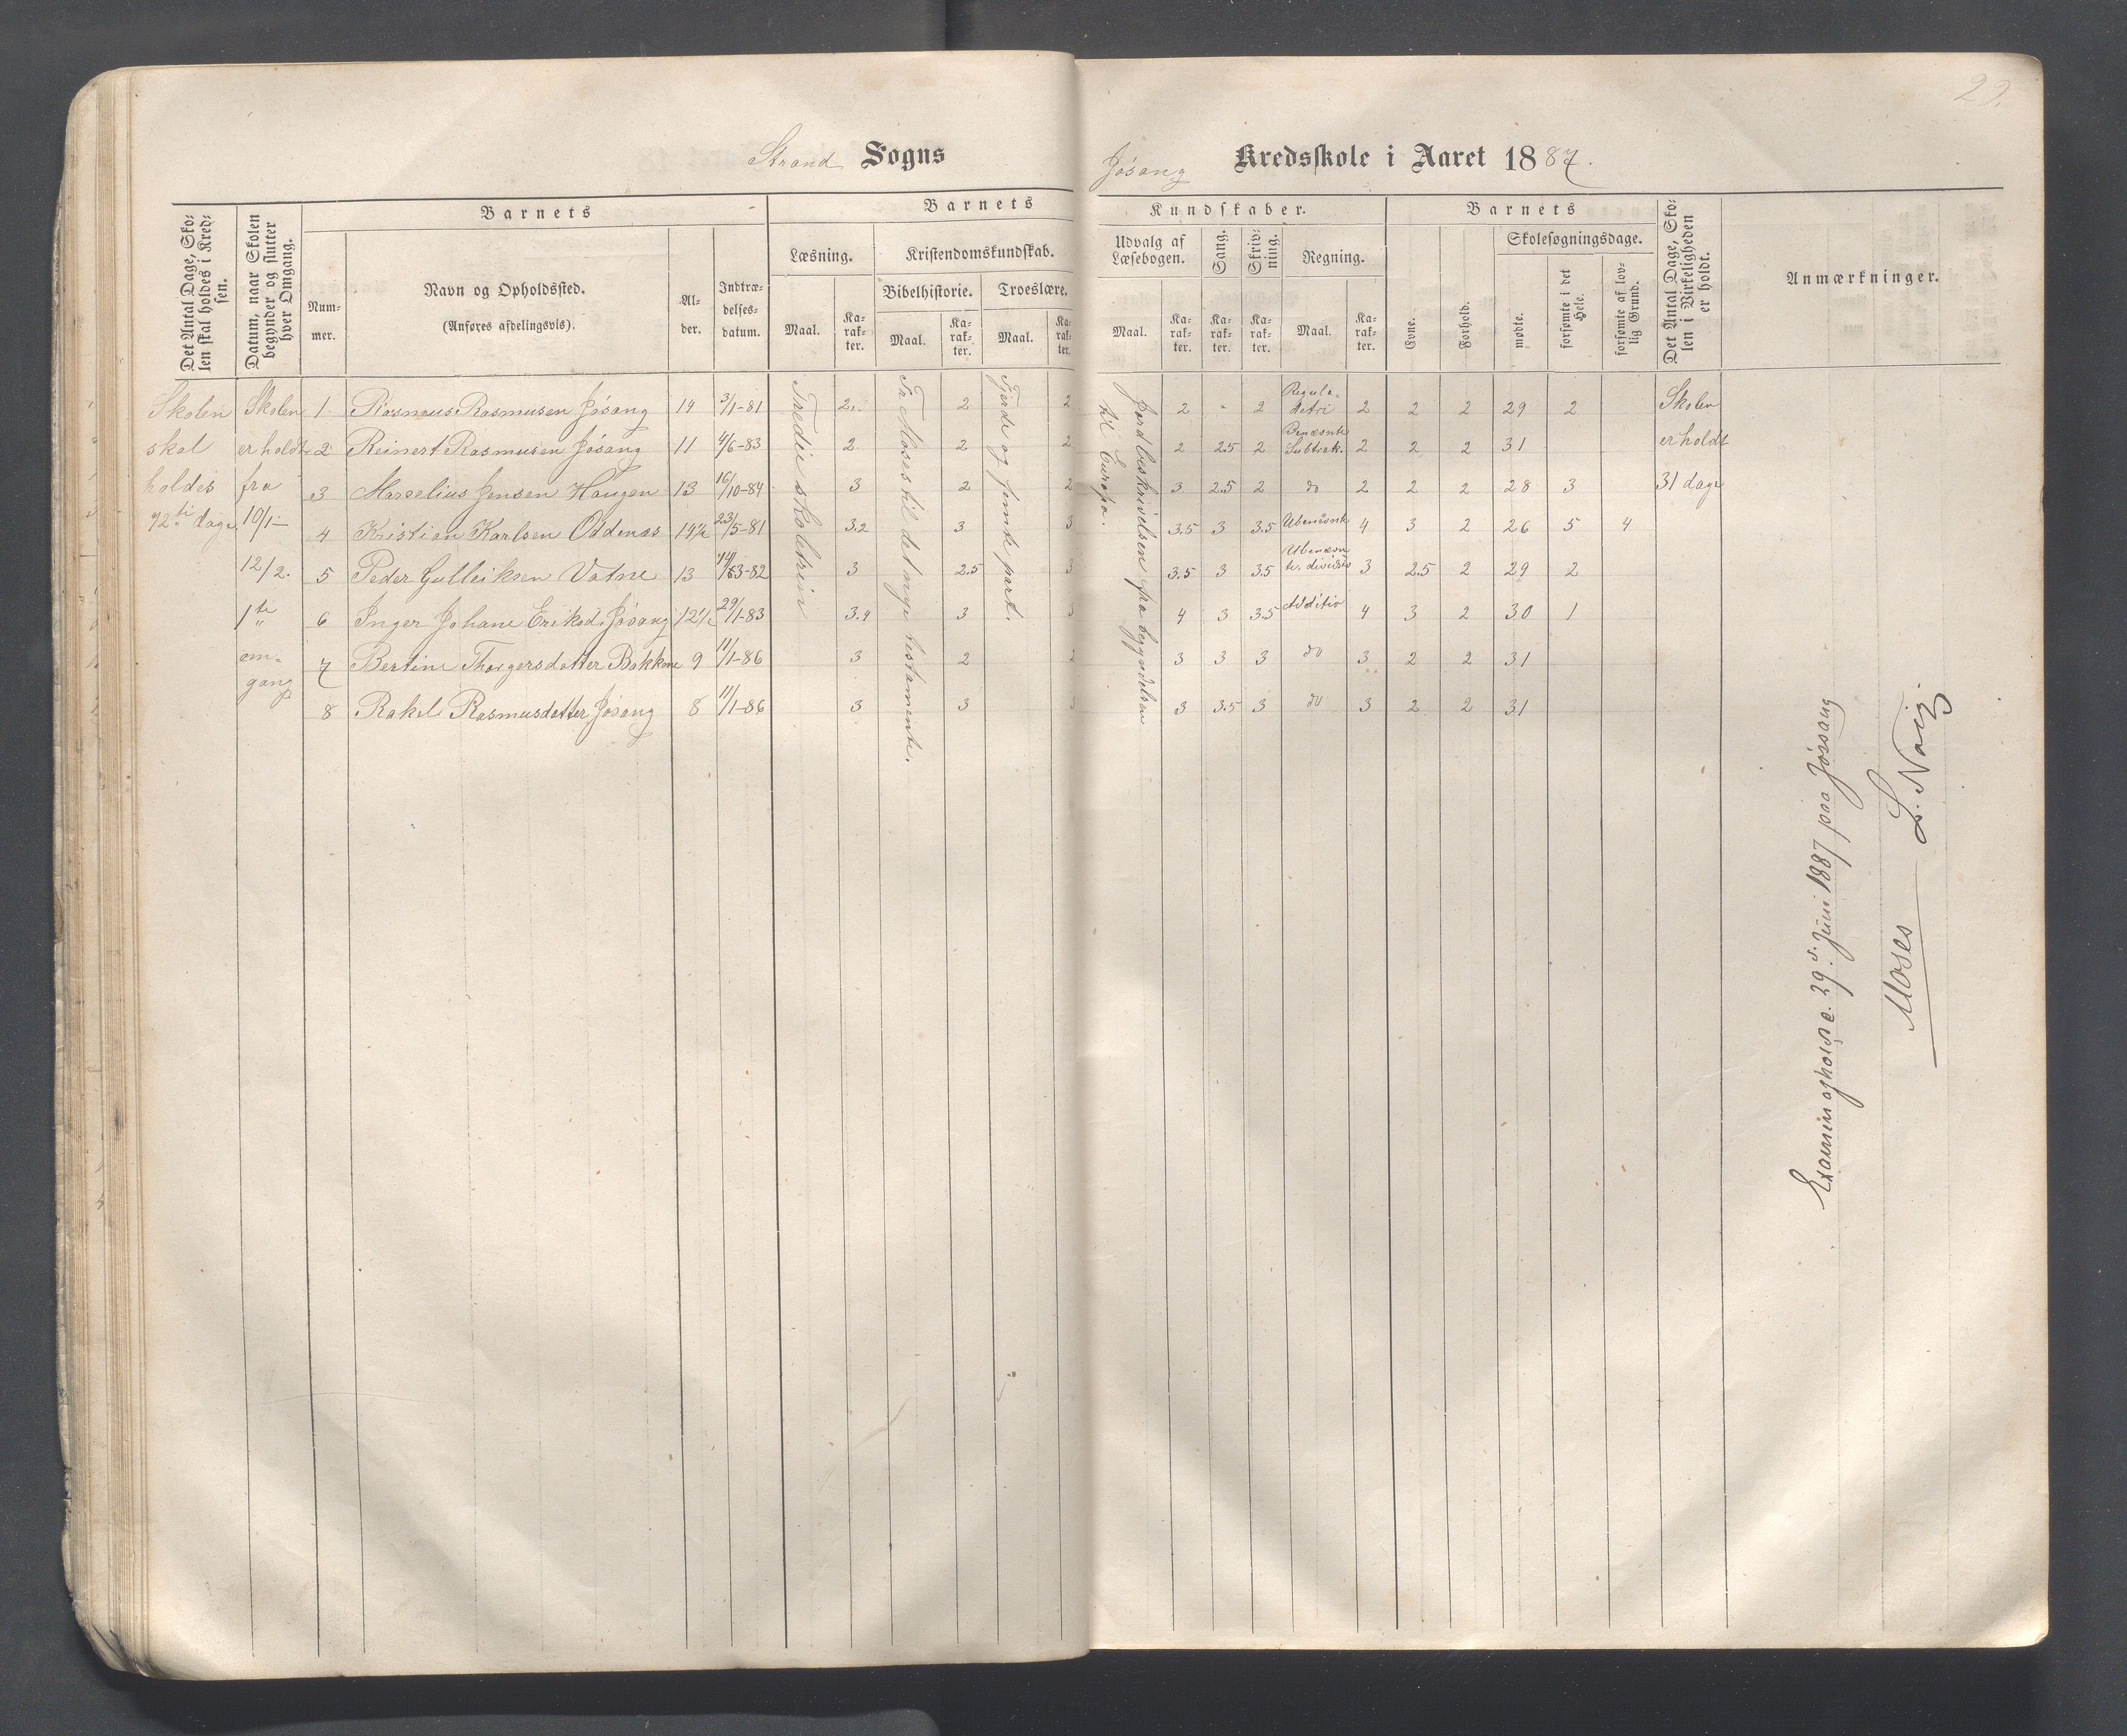 29.
Strand Sogns
Jøsang Kredsskole i Aaret 1887.
Det Antal Dage, Skolen skal holdes i Kredsen.
Datum, naar Skolen begynder og slutter hver Omgang.
Barnets
Nummer.
Navn og Opholdssted.
(Anføres afdelingsvis).
Alder.
Indtrædelsesdatum.
Barnets
Læsning.
Maal.
Karakter.
Kristendomskundskab.
Bibelhistorie.
Maal.
Karakter.
Troeslære.
Maal.
Karakter.
Kundskaber.
Udvalg af Læsebogen.
Maal.
Karakter.
Sang.
Karakter.
Skrivning.
Karakter.
Regning.
Maal.
Karakter.
Barnets
Evne.
Forhold.
Skolesøgningsdage.
mødte.
forsømte i det Hele.
forsømte af lovlig Grund.
Det Antal Dage, Skolen i Virkeligheden er holdt.
Anmærkninger.
Skolen
skal
holdes
72 ti dage
Skolen
er holdt
fra
10/1 –
12/2.
1 te
om-
gang
Tredie skoletrin
Fra Moses til det nye testamente.
Fjerde og femte part.
Jordbeskrivelsen fra begyndelsen
til Europa.
1 Rasmus Rasmusen Jøsang 14 3/1-81 2. 2 2 2 - 2 Regula-detri 2 2 2 29 2
2 Reinert Rasmusen Jøsang 11 4/6-83 2 2 2 2 2.5 2 Benævnte Subtrak. 2 2 2 31
3 Marselius Jensen Haugen 13 16/10-84 3 2 2 3 2.5 2 do 2 2 2 28 3
4 Kristian Karlsen Oddenæs 14½ 23/5-81 3.2 3 3 3.5 3 3.5 Ubenævnt 4 3 2 26 5 4
5 Peder Gulleiksen Vatne 13 3-82 3 2.5 3 3.5 3 3.5 Ubenævnte. divides 3 2.5 2 29 2
6 Inger Johane Eriksd. Jøsang 12½ 29/1-83 3.4 3 3 4 3 3.5 Additio 4 3 2 30 1
7 Bertine Thorgersdatter Bakkene 9 11/1-86 3 2 2 3 3 3 do 3 2 2 31
8 Rakel Rasmusdatter Jøsang 8 11/1-86 3 3 3 3.5 3 do 3 2 2 31
Skolen
er holdt
31 dage
Examin afholdt d. 29. d. Juni 1887 paa Jøssang
Moses — L. Naig